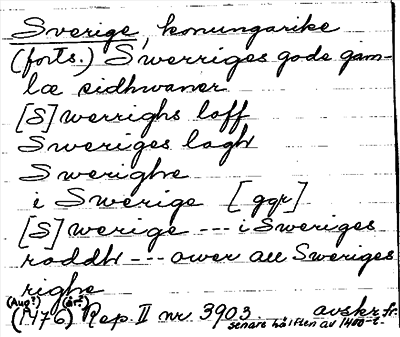 Sverige, konungarike
(forts.) Swerriges gode gam-
læ sidhwaner
[S]werrighs loff
Sweriges lagh
Swerighe
i Swerige [ggr]
[S]werige --- i Sweriges
raddh --- ower all Sweriges
righe
(Aug?) (år?)
(1476) Rep. II nr 3903 avskr. fr.
senare hälften av 1400-t.